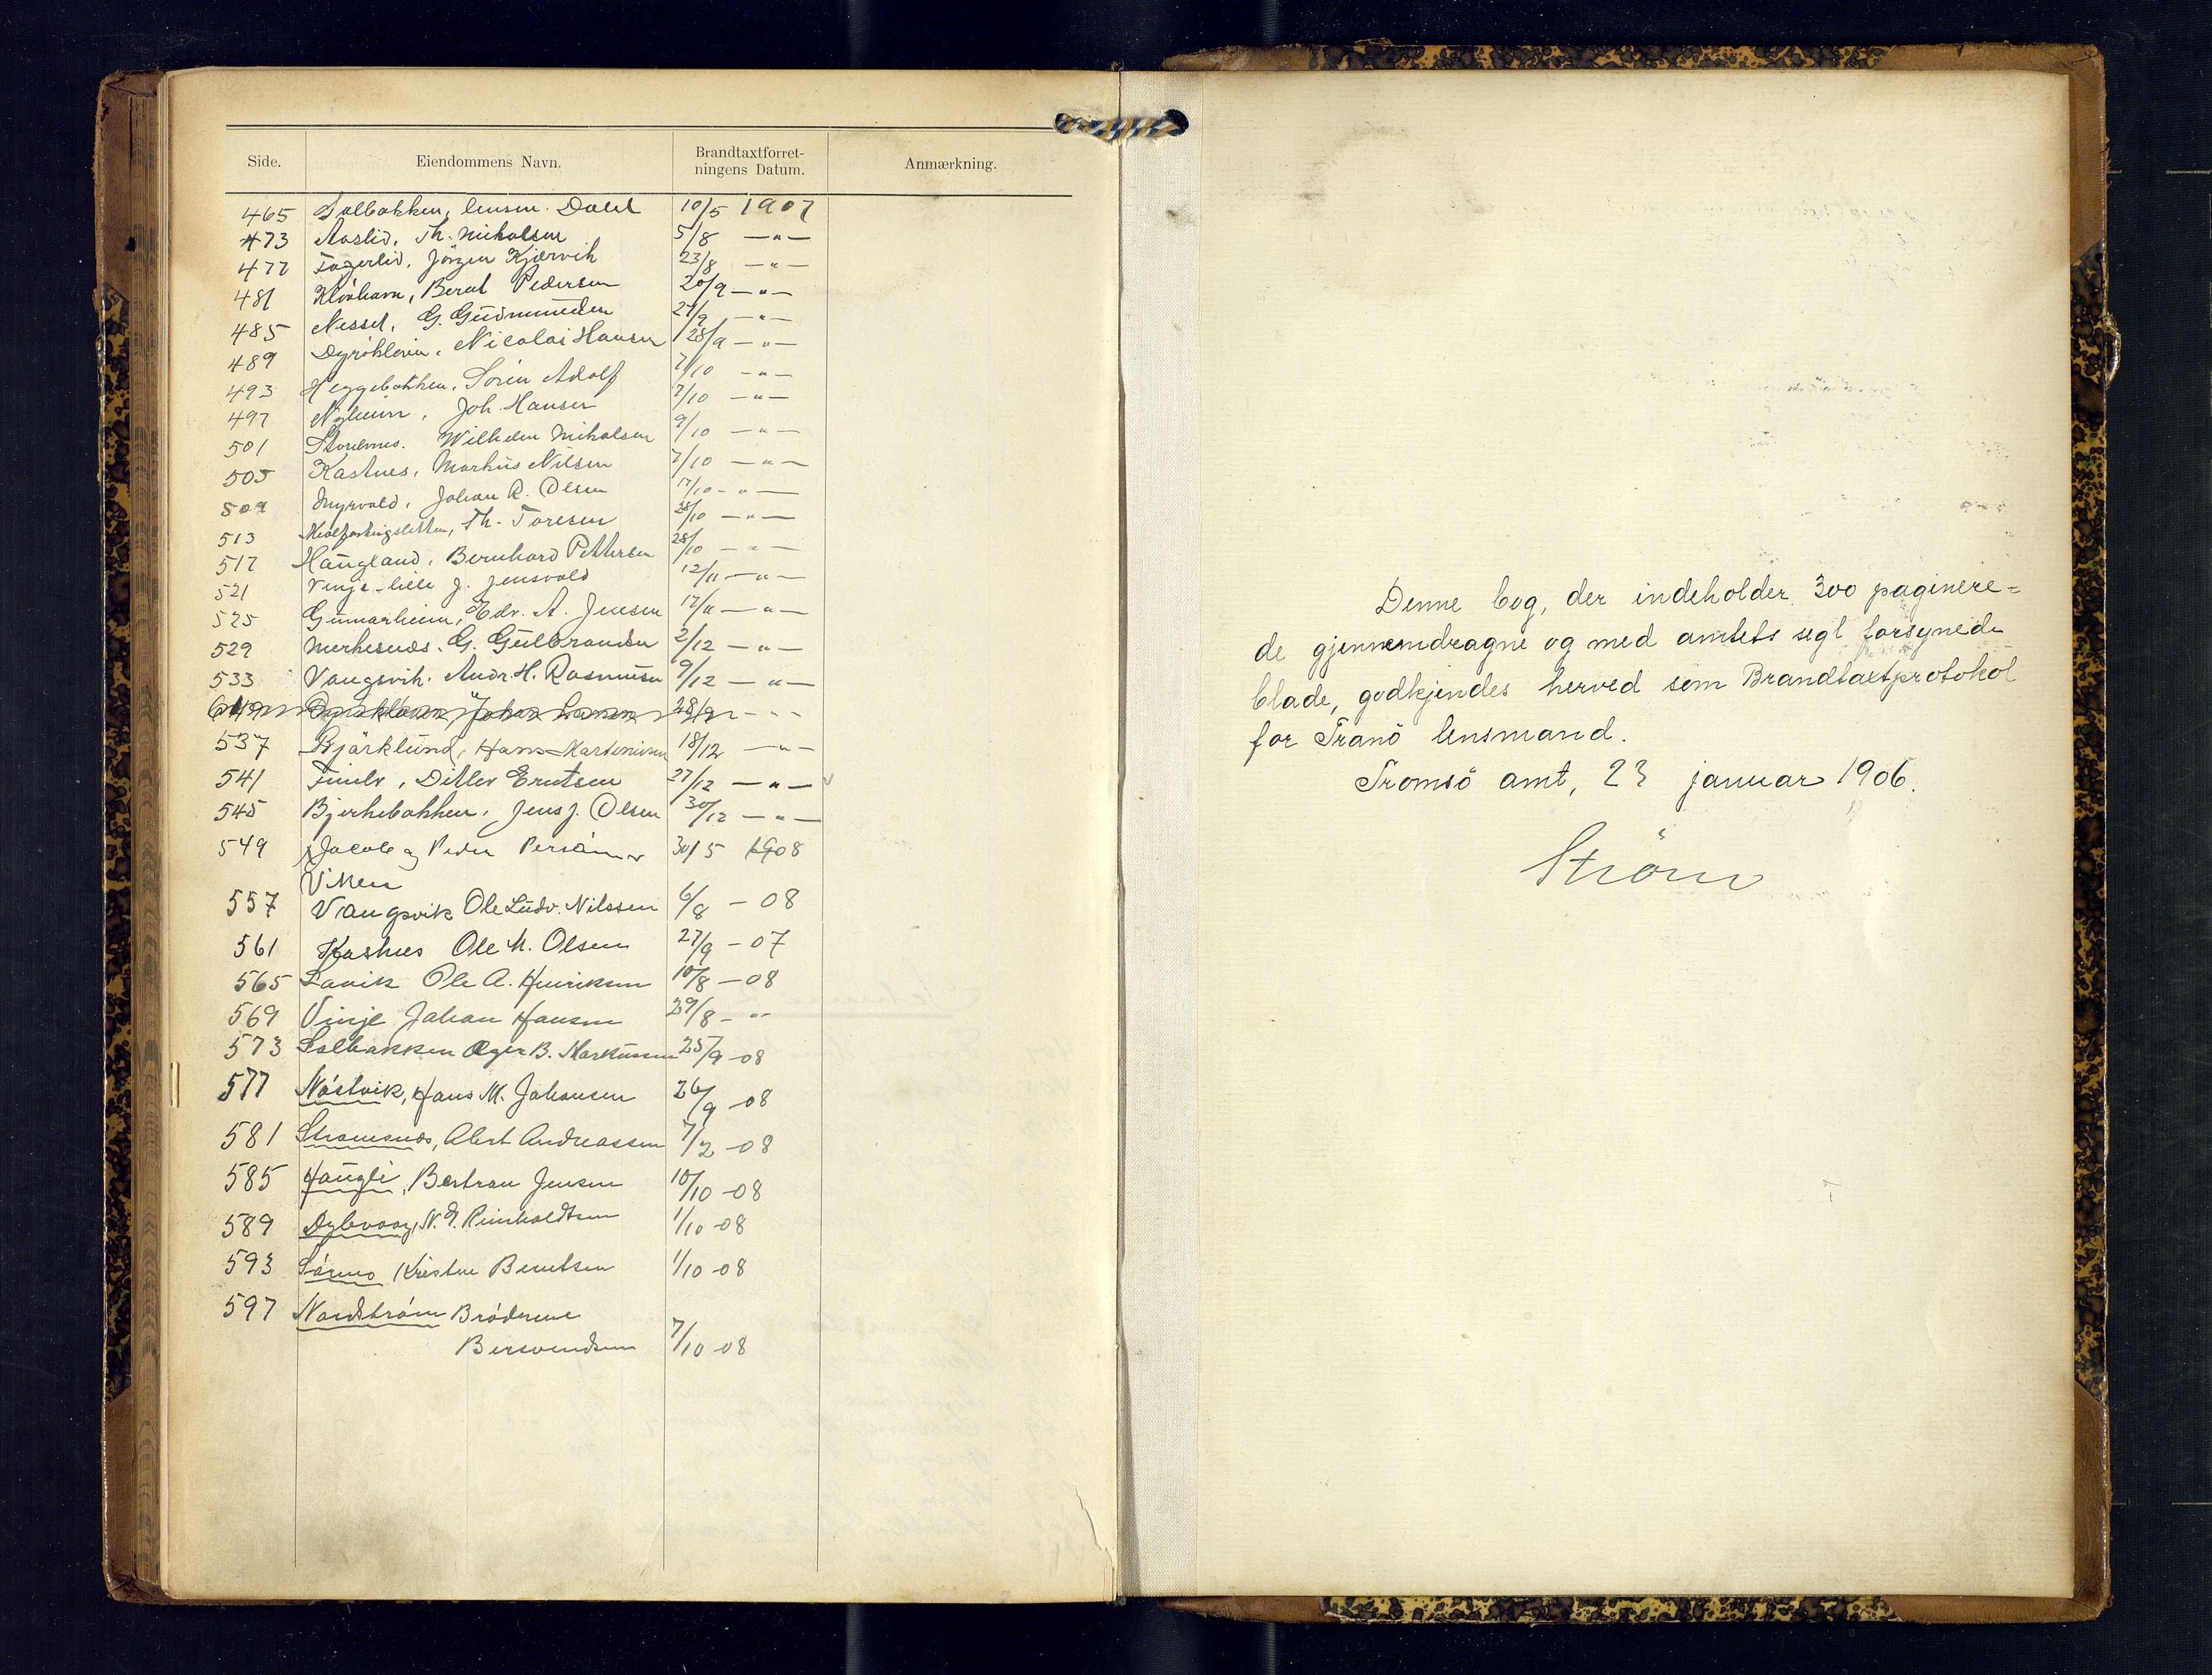 Side. Eiendommens Navn. Brandtaxtforret-
ningens Datum. Anmærkning.
465 Solbakken, lensm. Dahl 10/5 1907
473 Aaslid, Th. Nicholsen 5/8 —"—
477 Fagerlid, Jörgen Kjærvik 23/8 —"—
481 Klövhavn, Berat Pedersen 20/9 —"—
485 Nesset, G. Gudmundsen 27/9 —"—
489 Nicolai Hansen 28/9 —"—
493 Heggebakken, Sören Adolf 7/10 —"—
497 Nyheim, Joh. Hansen 7/10 —"—
501 Wilhelm Nicholsen 9/10 —"—
505 Kastnes, Markus Nilsen 7/10 —"—
509 Myrvold, Johan R. Olsen 17/10 —"—
513 Th. Toresen 28/10 —"—
517 Haugland, Bernhard Pettersen 28/10 —"—
521 Vinje lille J. Jensvold 12/11 —"—
525 Gunnarheim, Edv. A. Jensen 17/11 —"—
529 Merkesnæs. G. Gulbrandsen 2/12 —"—
533 Vangsvik. Andr. H. Rasmussen 9/12 —"—
537 Bjärklund, Hans Martinisen 18/12 —"—
541 Ditlev Erntsen 27/12 —"—
545 Bjerkebakken, Jens J. Olsen 30/12 —"—
549 Jacob og Peder 30/5 1908
Viken
557 Vangsvik Ole Ludv. Nilssen 6/8 — 08
561 Kastnes Ole M. Olsen 27/9 — 07
565 Lavik Ole A. Henriksen 10/8 — 08
569 Vinje Johan Hansen 29/8 — "
573 Solbakken Aage B. Markussen 25/9 -08
577 Nöstvik, Hans M. Johansen 26/9 -08
581 Stromsnæs, Albert Andreassen 7/2 -08
585 Haugli, Bertran Jensen 10/10 -08
589 Dybvaag, N. E. Reinholdtsen 1/10 -08
593 Sörmo Kristen Berntsen 1/10 -08
597 Nordström Brödrene
Bersvendsen 7/10 -08
Denne bog, der indeholder 300 paginere-
de gjennemdragne og med amtets segl forsynede
blade, godkjendes herved som Brandtaxtprotokol
for Tranö lensmand.
Tromsö amt, 23 januar 1906.
Ström